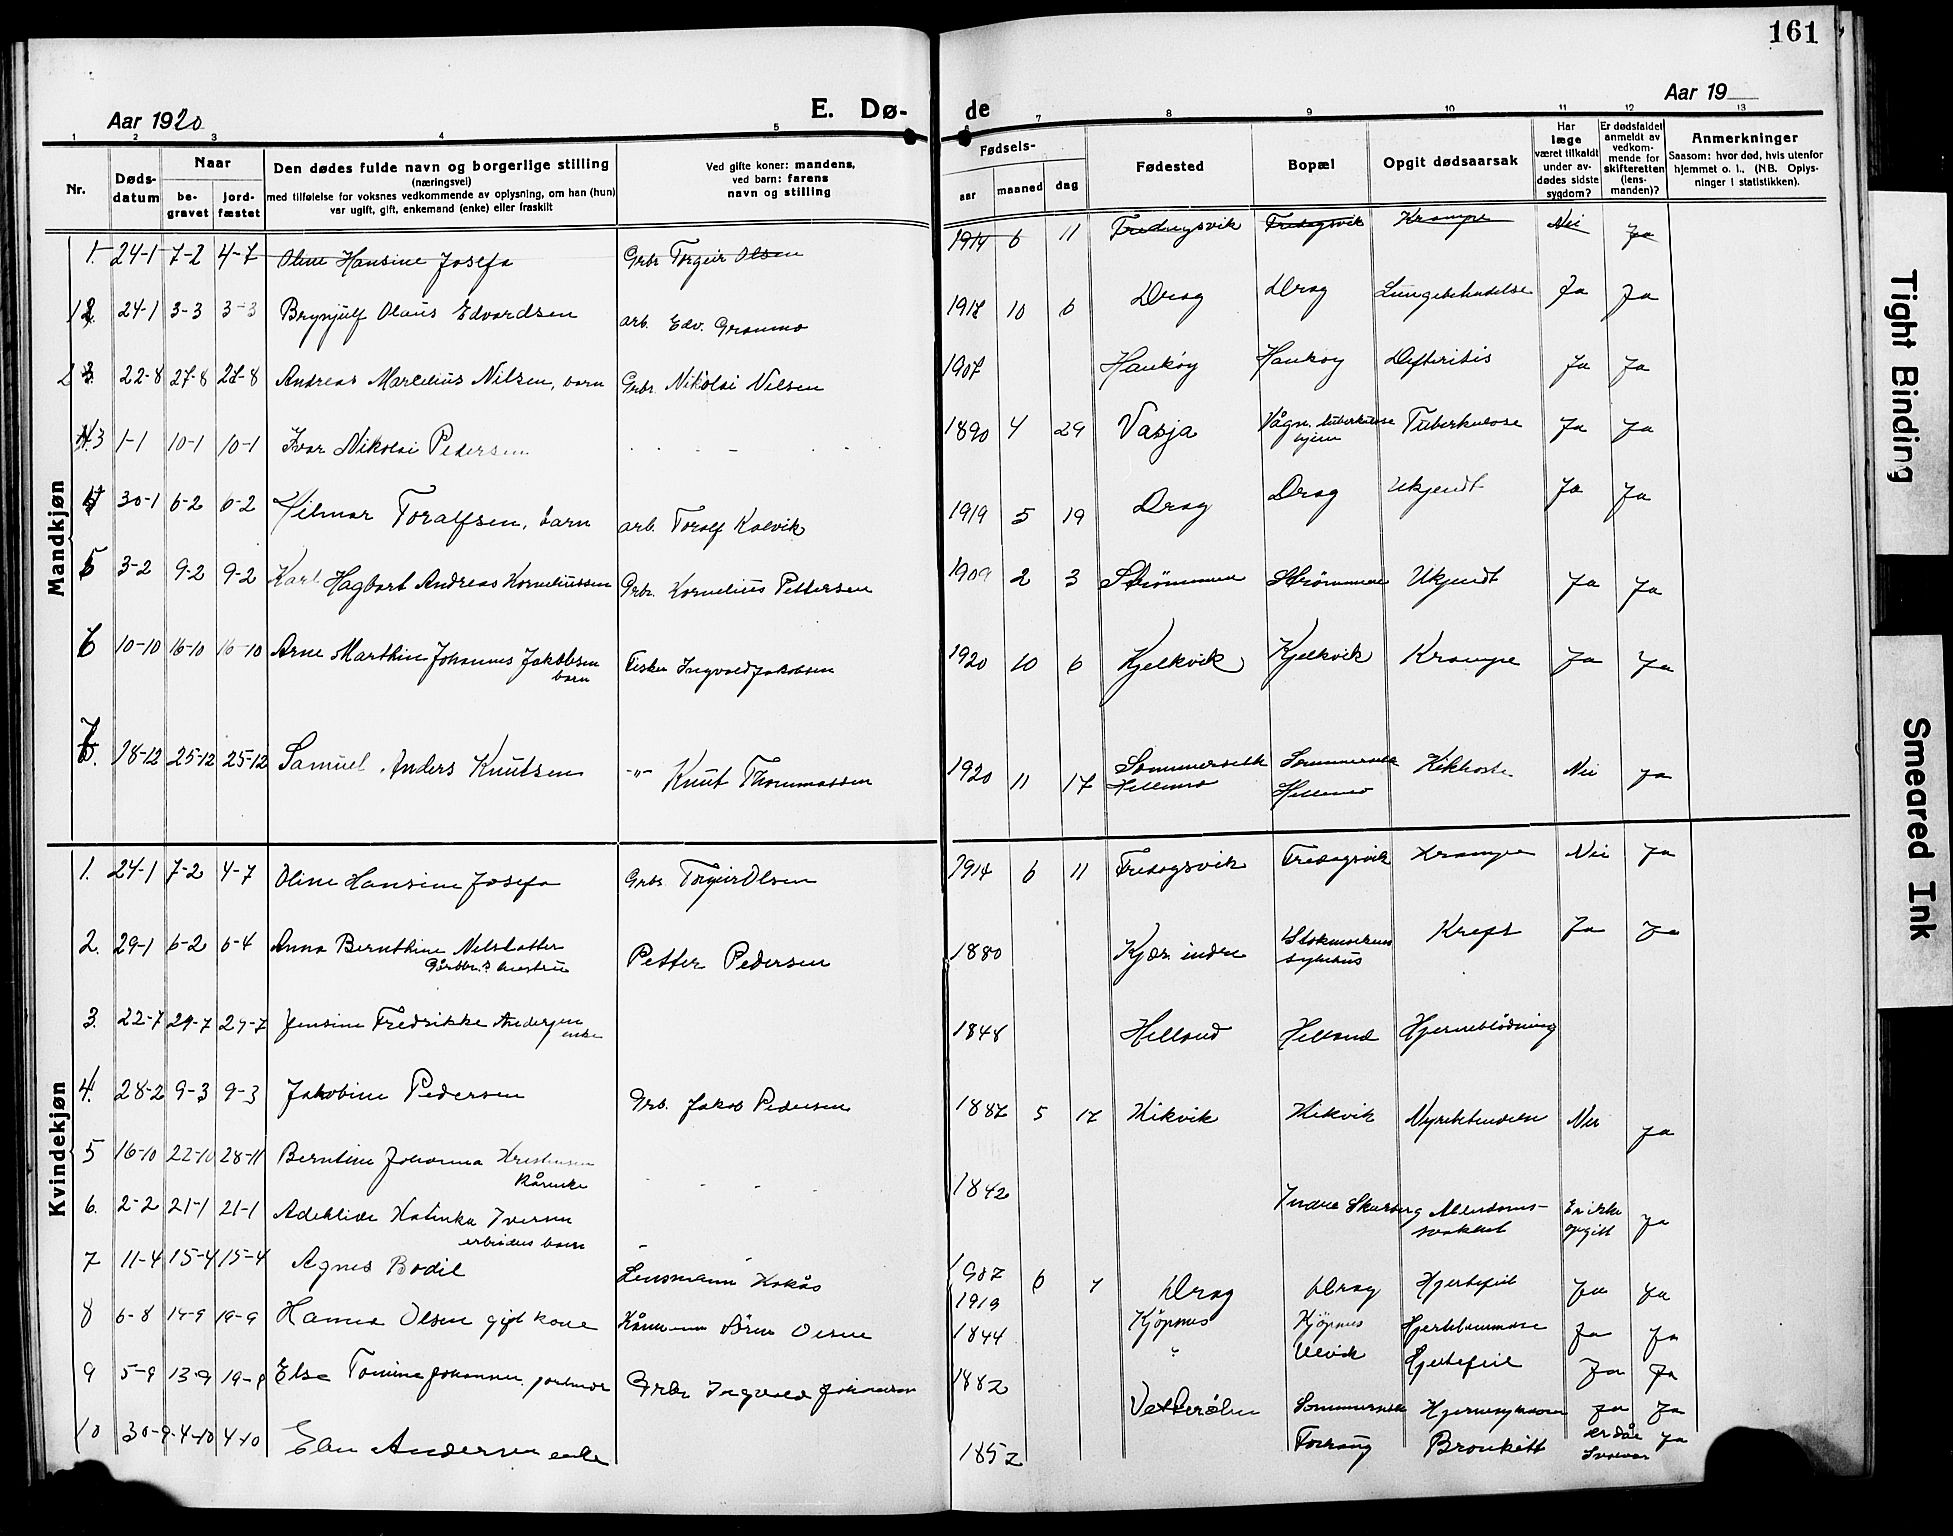 161
Aar 1920
E. Dø- de
Aar 19
1 2 3 4 5 6 7 8 9 10 11 12 13
Nr.
Døds-datum
Naar
be-gravet
jord-fæstet
Den dødes fulde navn og borgerlige stilling
(næringsvei)
med tilføielse for voksnes vedkommende av oplysning, om han (hun)
var ugift, gift, enkemand (enke) eller fraskilt
Ved gifte koner: mandens,
ved barn: farens
navn og stilling
Fødsels-
aar maaned dag
Fødested
Bopæl
Opgit dødsaarsak
Har læge været tilkaldt under av-dødes sidste sygdom?
Er dødsfaldet anmeldt av vedkom-mende for skifteretten (lens-manden)?
Anmerkninger
Saasom: hvor død, hvis utenfor
hjemmet o. l. (NB. Oplys-
ninger i statistikken).
Mandkjøn
1. 24-1 7-2 4-7 Oline Hansine Josefa Grbr Torgeir Olsen 1914 6 11 Fredagsvik Fredagsvik Krampe Nei Ja
2 24-1 3-3 3-3 Brynjulf Olaus Edvardsen arb. Edv. Granmo 10 6 Drag Drag Ja Ja
22-8 27-8 27-8 Andreas Nilsen, barn Grbr. Nikolai Nilsen 1907 Haukøy Haukøy Difteritis Ja Ja
3 1-1 10-1 10-1 Ivar Nikolai Pedersen 1890 4 29 Vasja Vågn. tuberkulose hjem Tuberkulose Ja Ja
4 30-1 6-2 6-2 Hilmar Toralfsen, barn arb. Toralf Kalvik 1919 5 19 Drag Drag Ukjendt Ja Ja
5 3-2 9-2 9-2 Karl Hagbart Andreas Korneliussen Grbr. Kornelius Pettersen 1909 2 3 Strømmen Strømmen Ukjendt Ja Ja
6 10-10 16-10 16-10 Arne Marthin Johannes Jakobsen barn Fisker Ingvald Jakobsen 1920 10 6 Kjelkvik Kjelkvik Krampe Ja Ja
7 18-12 25-12 25-12 Samuel Anders Knutsen -"- Knut Thommassen 1920 11 17 Sommersett Hellemo Sommersett Hellemo Kikhoste Nei Ja
Kvindekjøn
1. 24-1 7-2 4-7 Oline Hansine Josefa Grbr Torgeir Olsen 1914 6 11 Fredagsvik Fredagsvik Krampe Nei Ja
2. 29-1 6-2 6-4 Anna Bernthine Nelsdatter Gårbbr.s hustru Petter Pedersen 1880 Kjær indre Stokmarknes sykehus Kreft Ja Ja
3. 22-7 29-7 29-7 Jensine Fredrikke Andersen enke 1848 Helland Helland Hjerneblödning
4. 28-2 9-3 9-3 Jakobine Pedersen Grb. Jakob Pedersen 1887 5 17 Kikvik Kikvik Nyrebetendelse Nei Ja
5 16-10 22-10 28-11 Berntine Johanna Kristensen 1842 Indre Alderdoms-svakhet Er ikke opgitt Ja
6. 2-2 21-1 21-1 Katinka Iversen arbeiders barn
7 11-4 15-4 15-4 Agnes Bodil Lensmann Kokås 1907 6 7 Drag Drag Hjertefeil Ja Ja
8 6-8 14-9 19-9 Hanna Olsen gift kone Sören Olsen 1919 Kjöpnes Kjöpnes Ja Ja
1844 " Ulvik Hjertefeil Ja Ja
9 5-9 13-9 19-9 Else Johansen Grbr Ingvald Johansen 1882 Sommersett Ja Ja
10 30-9 4-10 4-10 Elen Andersen enke 1852 Bronkitt Ja
Tight Binding
Smeared Ink